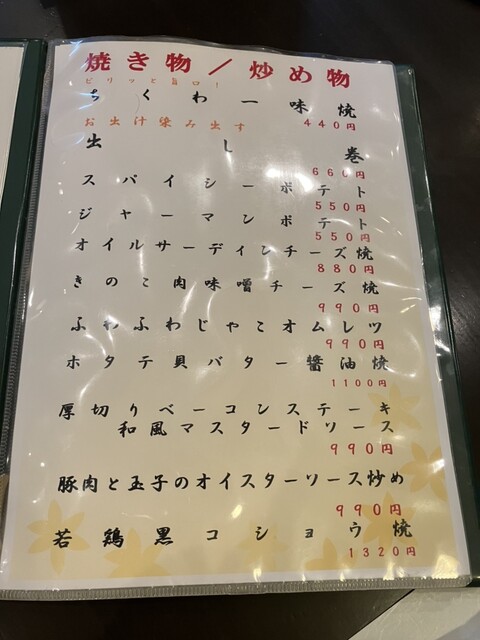 焼き物／炒め物
ピリッと旨口！
ちくわ一味焼
440円
お出汁染み出す
出し巻
660円
スパイシーポテト
550円
ジャーマンポテト
550円
オイルサーディンチーズ焼
880円
きのこ肉味噌チーズ焼
990円
ふわふわじゃこオムレツ
990円
ホタテ貝バター醬油焼
1100円
厚切りベーコンステーキ
和風マスタードソース
990円
豚肉と玉子のオイスターソース炒め
990円
若鶏黒コショウ焼
1320円